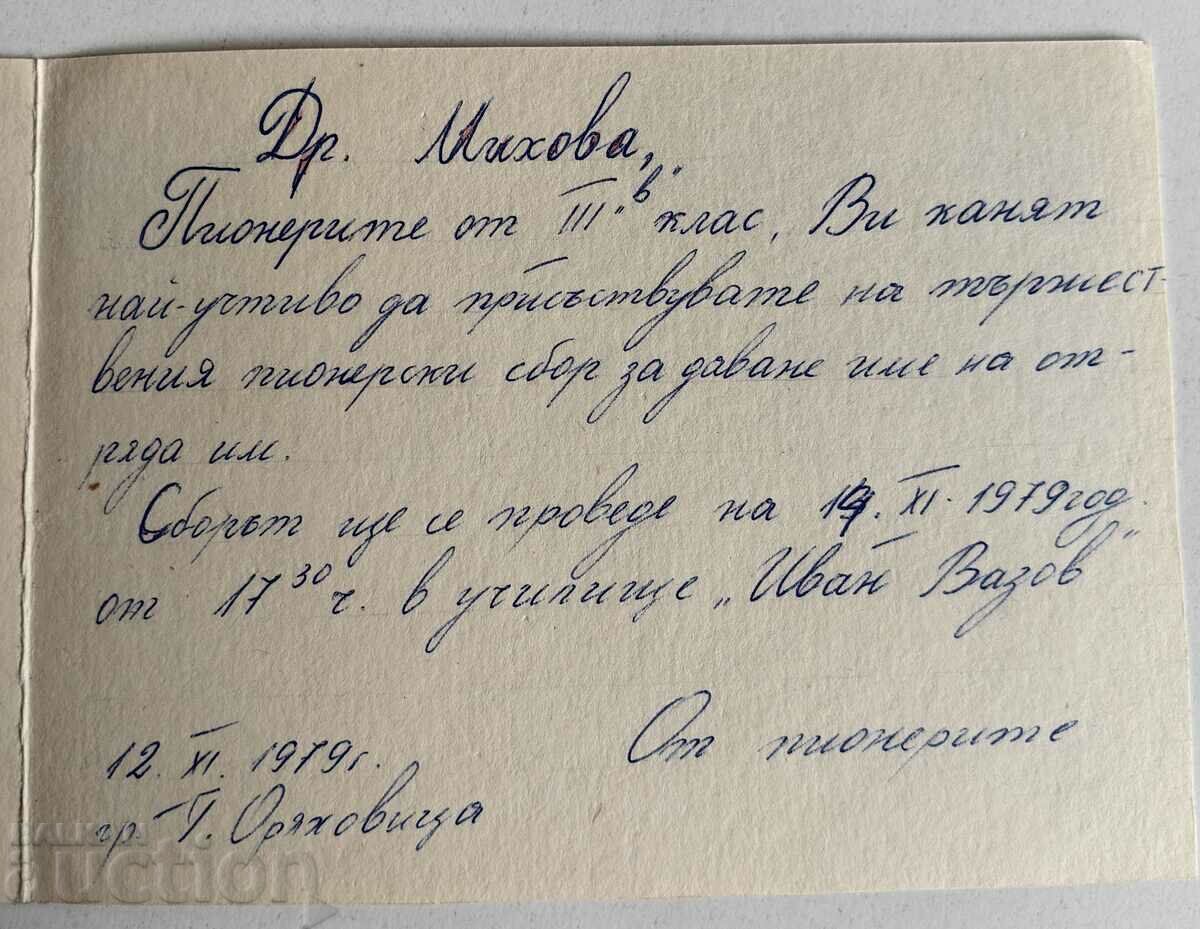 Др. Михова,
Пионерите от III "в" клас, Ви канят
най-учтиво да присъствувате на тържест-
вения пионерски сбор за даване име на от-
ряда им.
Сборът ще се проведе на XI. 1979 год.
от 17 30 ч. в училище "Иван Вазов"
От пионерите
12. XI. 1979 г.
гр. Г. Оряховица
БАЛКАН
auction